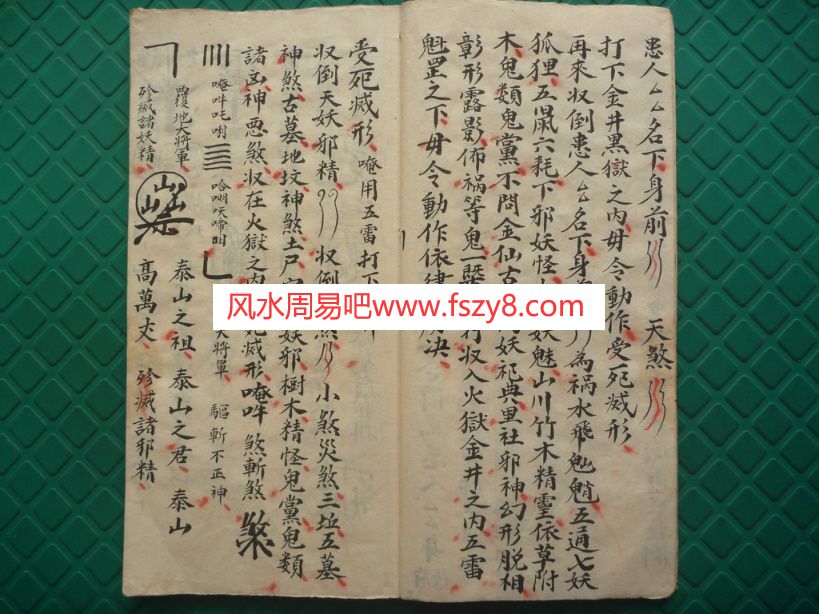 患人厶厶名下身前 天煞
打下金井黑獄之内毋令動作受死滅形
再来収倒患人厶名下身 為禍水飛 五通七妖
狐狸五鼠六耗下邪妖怪 妖魅山川竹木精靈依草附
木鬼類鬼黨不問金仙古 妖祀典里社邪神幻形脱相
彰形露影佈禍等鬼一槩 収入火獄金井之内五雷
魁罡之下毋令動作依律 决
受死滅形 唵用五雷打下
収倒天妖邪精 収倒 小煞災煞三坵五墓
神煞古墓地坟神煞土尸 妖邪樹木精怪鬼黨鬼類
諸凶神惡煞収在火獄之内 死滅形唵吽 煞斬煞
唵吽吒唎 大將軍 驅斬不正神
覆地大將軍 殄滅諸妖精 泰山之祖 泰山之君 泰山
高萬丈 殄滅諸邪精
风水周易吧www.fszy8.com